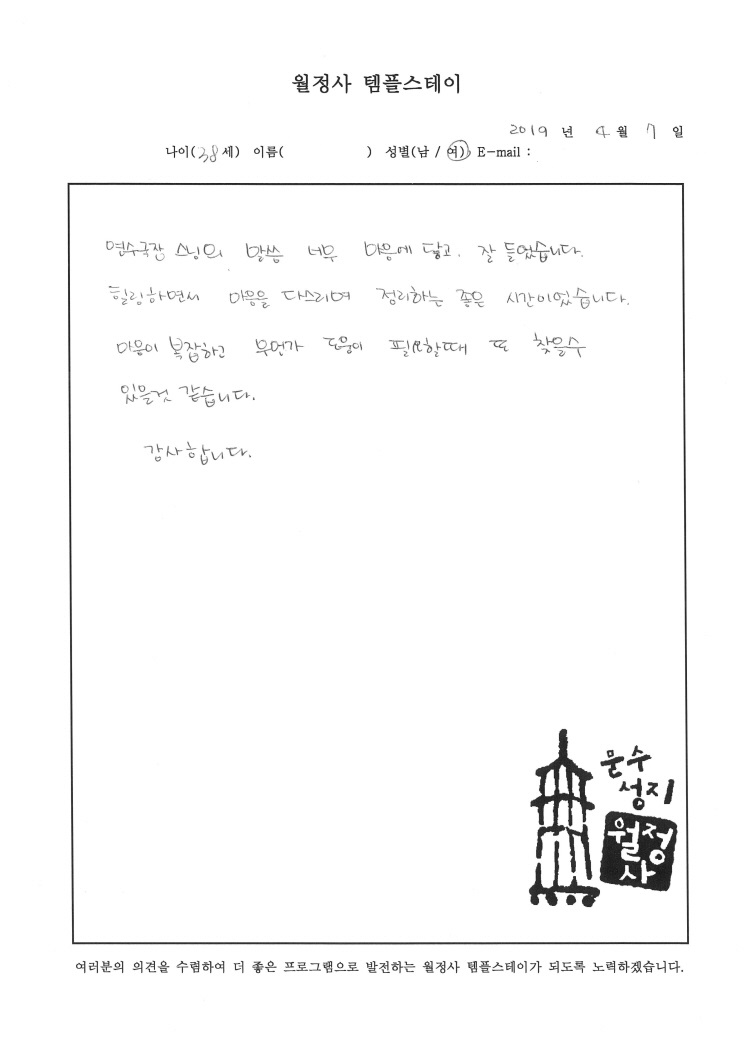 월정사 템플스테이
2019 년 4 월 7 일
나이(38세) 이름( ) 성별(남 / 여) E-mail :
스님의 말씀 너무 마음에 닿고. 잘 들었습니다.
힐링하면서 마음을 다스리며 정리하는 좋은 시간이었습니다.
마음이 복잡하고 무언가 도움이 필요할때 또 찾을수
있을것 같습니다.
감사합니다.
문수
성지
월정
사
여러분의 의견을 수렴하여 더 좋은 프로그램으로 발전하는 월정사 템플스테이가 되도록 노력하겠습니다.